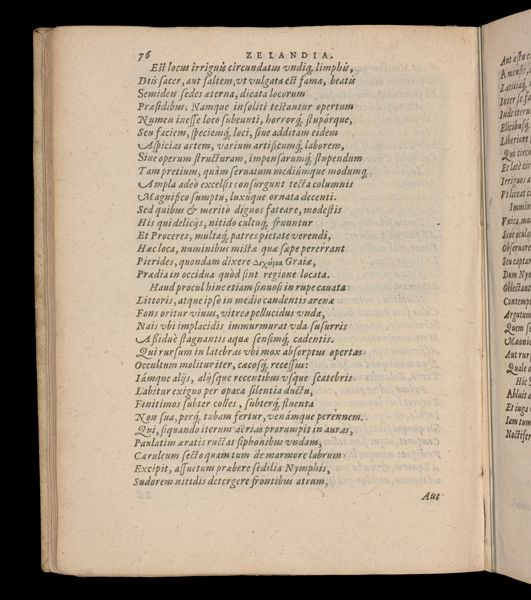 76 ZELANDIA.
Est locus irriguis circundatus vndiq; limphis,
Diis sacer, aut saltem, vt vulgata est fama, beatis
Semideis sedes æterna, dicata locorum
Præsidibus. Namque insoliti testantur opertum
Numen inesse loco subeunti, horrorq́; stuporque,
Seu faciem, speciemq́; loci, siue additam eidem
Aspicias artem, varium artificumq́; laborem,
Siue operum structuram, impensarumq́; stupendum
Tam pretium, quàm seruatum mediúmque modumq́;
Ampla adeò excelsis consurgunt tecta columnis
Magnifico sumptu, luxúque ornata decenti.
Sed quibus & meritò dignos fateare, modestis
His qui delicijs, nitido cultuq́; fruuntur
Et Proceres, multaq́; patres pietate verendi,
Hæc loca, numinibus mistæ quæ sæpe pererrant
Pierides, quondam dixere Graiæ,
Prædia in occidua quòd sint regione locata.
Haud procul hinc etiam sinuosi in rupe cauata
Littoris, atque ipso in medio candentis arenæ
Fons oritur viuus, vitreo pellucidus vnda,
Nais vbi implacidis immurmurat vda susurris
Aßiduè stagnantis aquæ sensimq́; cadentis.
Qui rursum in latebras vbi mox absorptus opertas
Occultum molitur iter, cæcosq́; recessus:
Iámque alijs, alijsque recentibus vsque scatebris
Labitur exiguo per opaca silentia ductu,
Finitimos subter colles, subterq́; fluenta
Non sua, perq́; tubam fertur, venámque perennem.
Qui, siquando iterum aërias prorumpit in auras,
Paulatim æratis ructat siphonibus vndam,
Cæruleum secto quam tum de marmore labrum
Excipit, assuetum præbere sedilia Nymphis,
Sudorem nitidis detergere frontibus atrum,
Aut